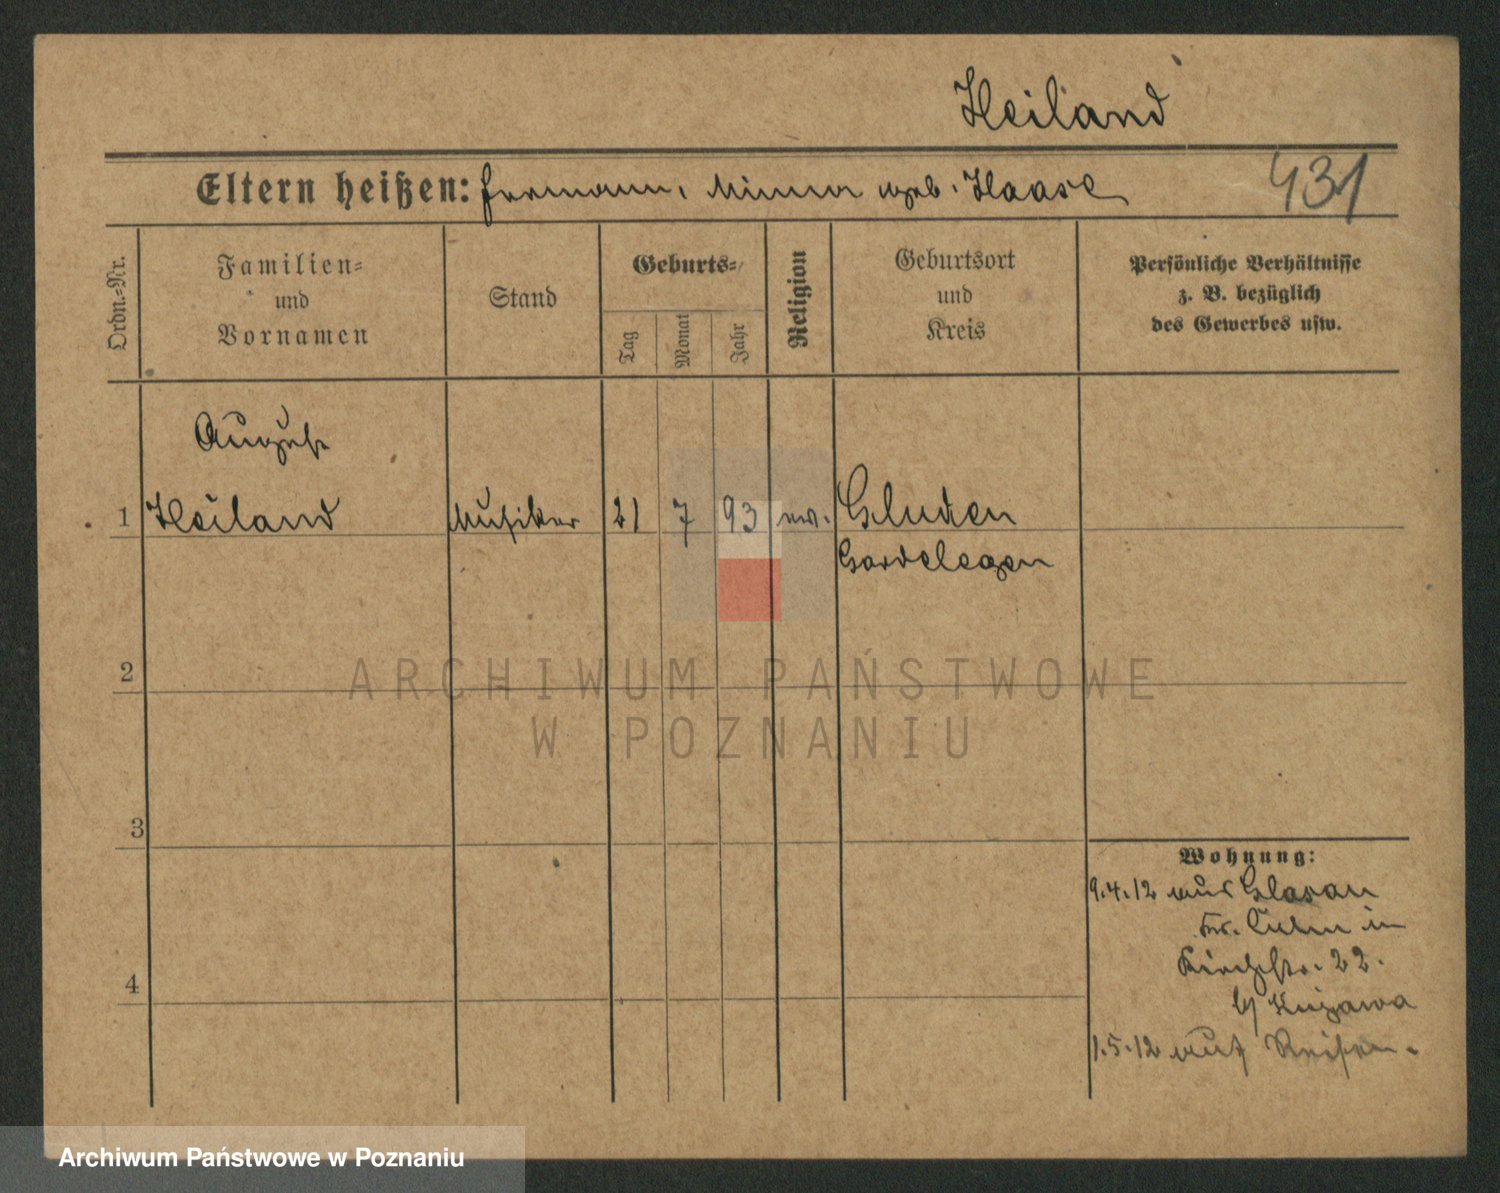 Heiland
Eltern heißen: Hermann, Minna geb. Haase
431
Ordn.-Nr.
Familien-
und
Vornamen
Stand
Geburts-
Tag
Monat
Jahr
Religion
Geburtsort
und
Kreis
Persönliche Verhältnisse
z. B. bezüglich
des Gewerbes usw.
August
1 Heiland Musiker 21 7 93 ev.
Gardelegen
2
ARCHIWUM PAŃSTWOWE
W POZNANIU
3
4
Wohnung:
9.4.12 aus
Kr. Culm in
Kirchstr. 22.
b/ Kujawa
1.5.12 auf Reisen.
Archiwum Państwowe w Poznaniu